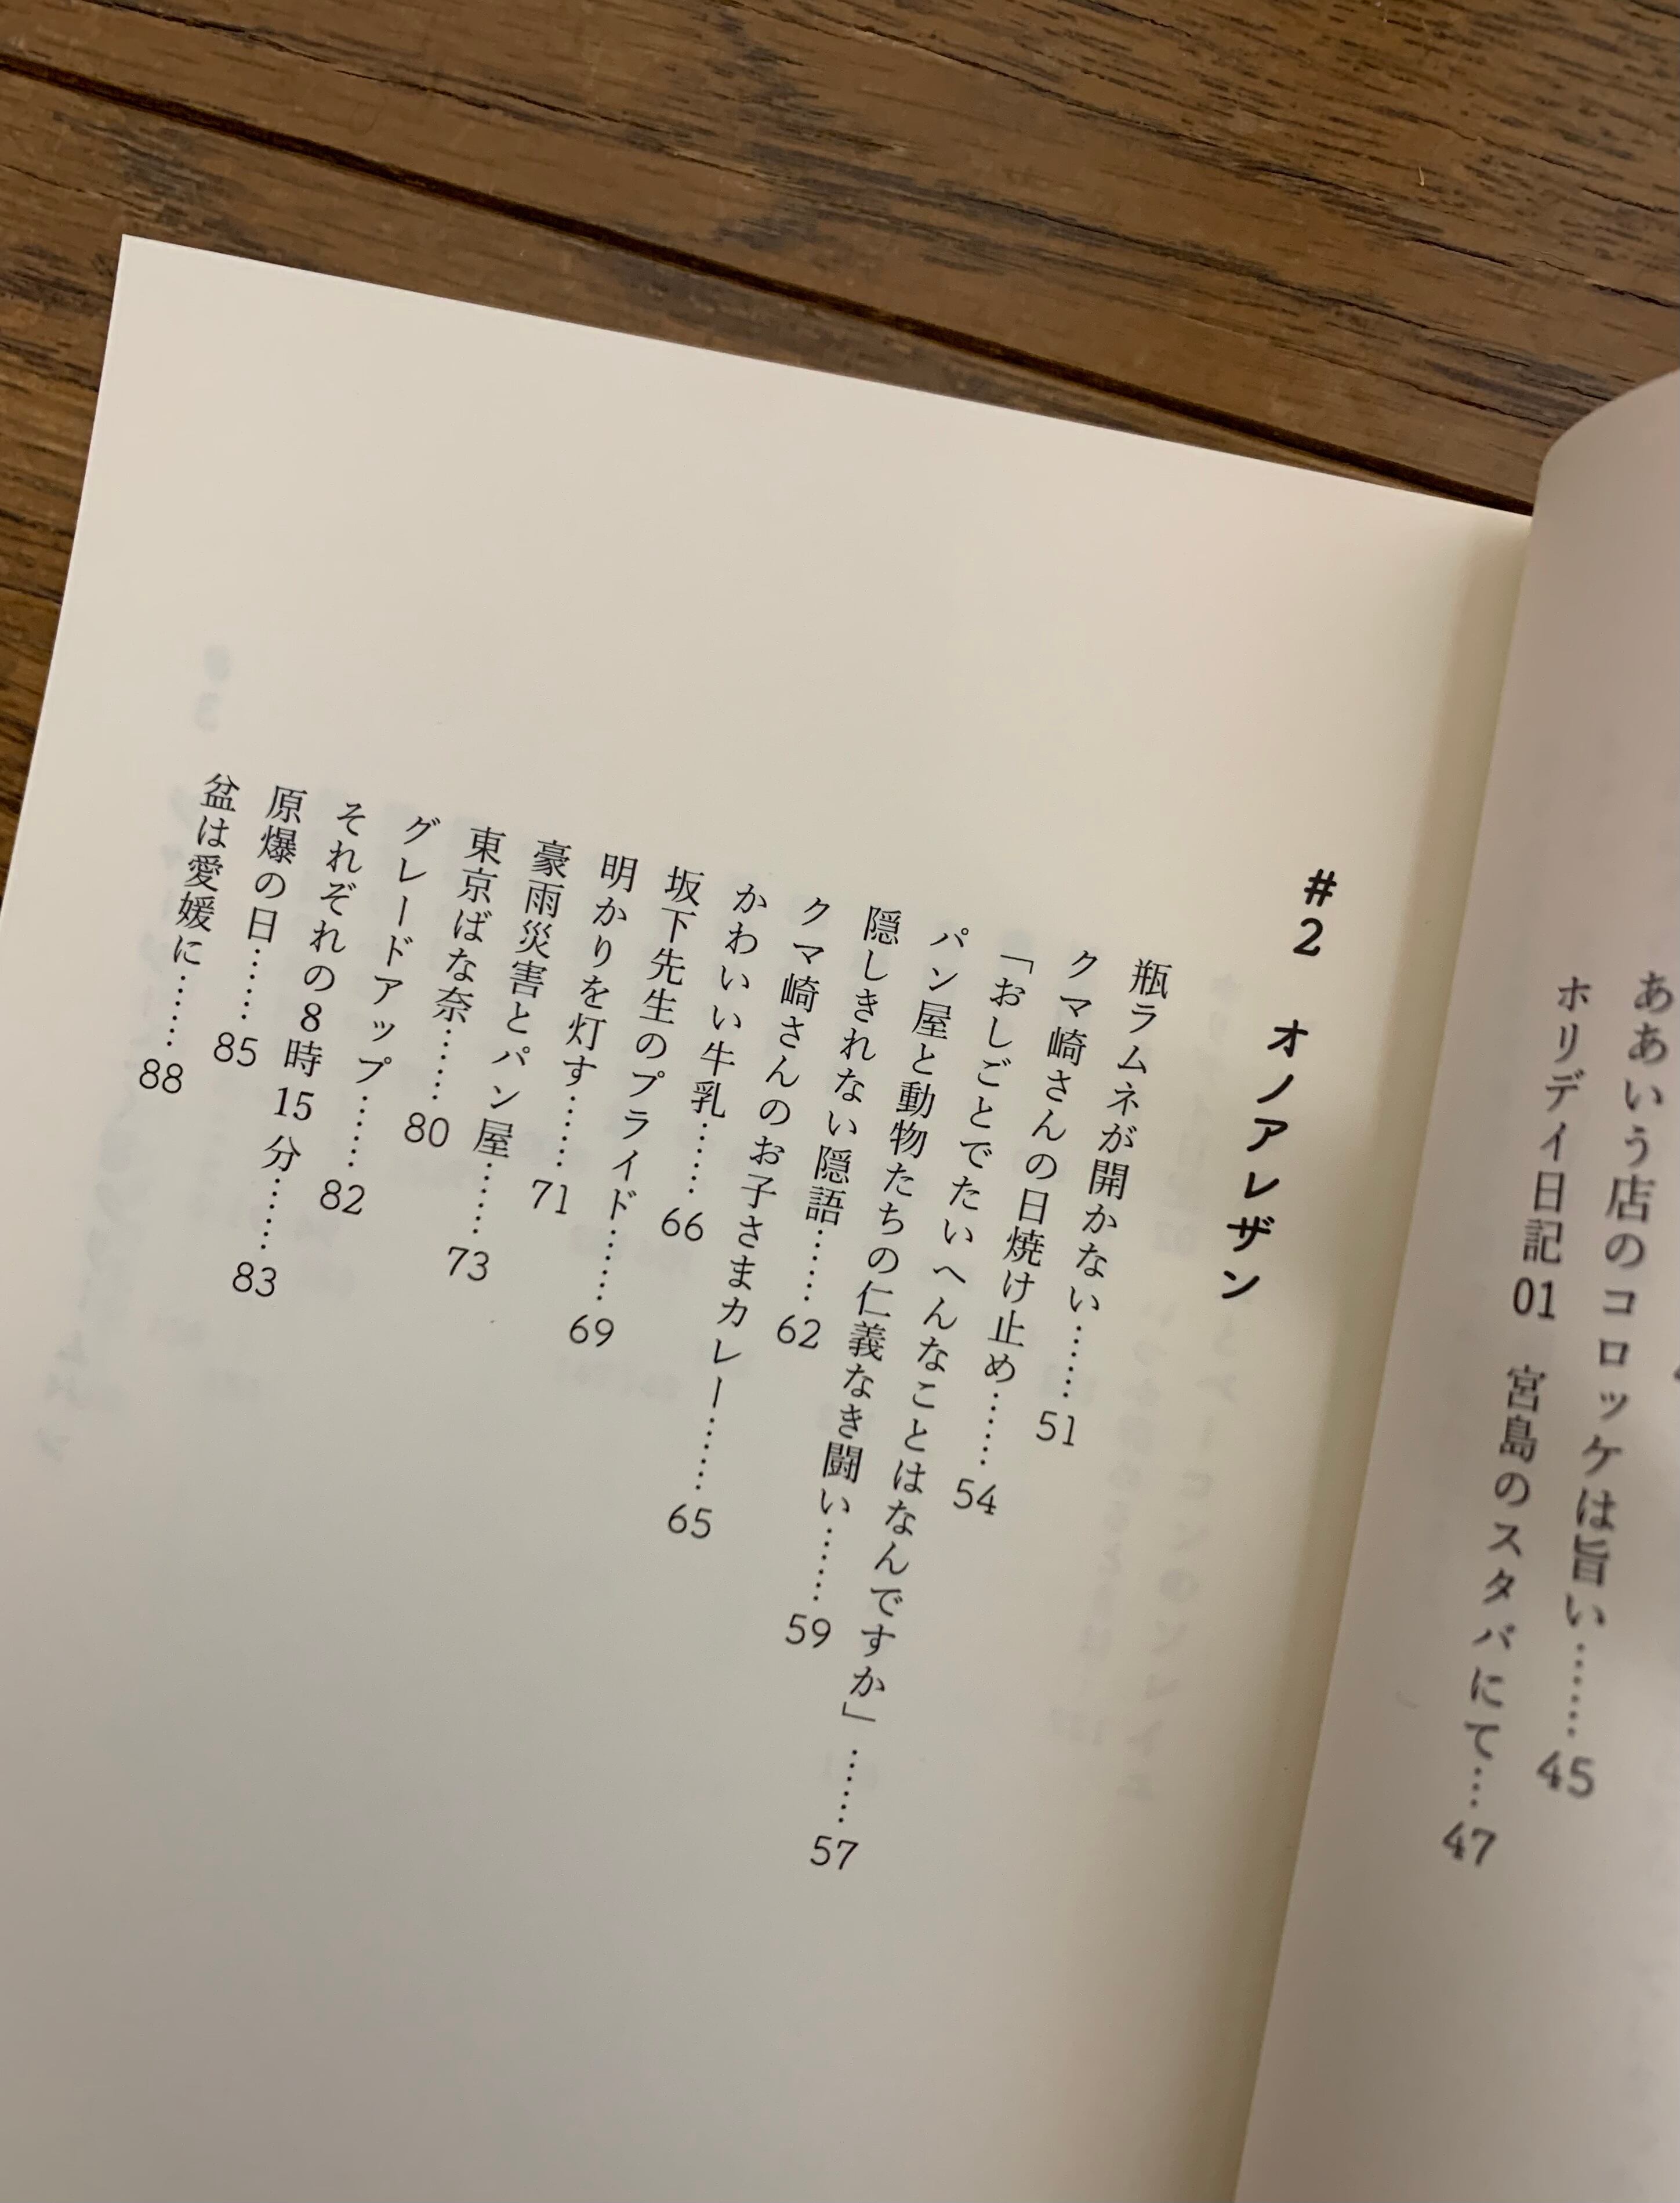 ああいう店のコロッケは旨い…… 45
ホリデイ日記01 宮島のスタバにて… 47
#2 オノアレザン
瓶ラムネが開かない…… 51
クマ崎さんの日焼け止め…… 54
「おしごとでたいへんなことはなんですか」…… 57
パン屋と動物たちの仁義なき闘い…… 59
隠しきれない隠語…… 62
クマ崎さんのお子さまカレー…… 65
かわいい牛乳…… 66
坂下先生のプライド…… 69
明かりを灯す…… 71
豪雨災害とパン屋…… 73
東京ばな奈…… 80
グレードアップ…… 82
それぞれの8時15分…… 83
原爆の日…… 85
盆は愛媛に…… 88